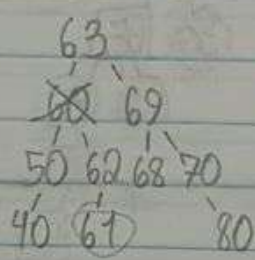 63
60 69
50 62 68 70
40 61 80